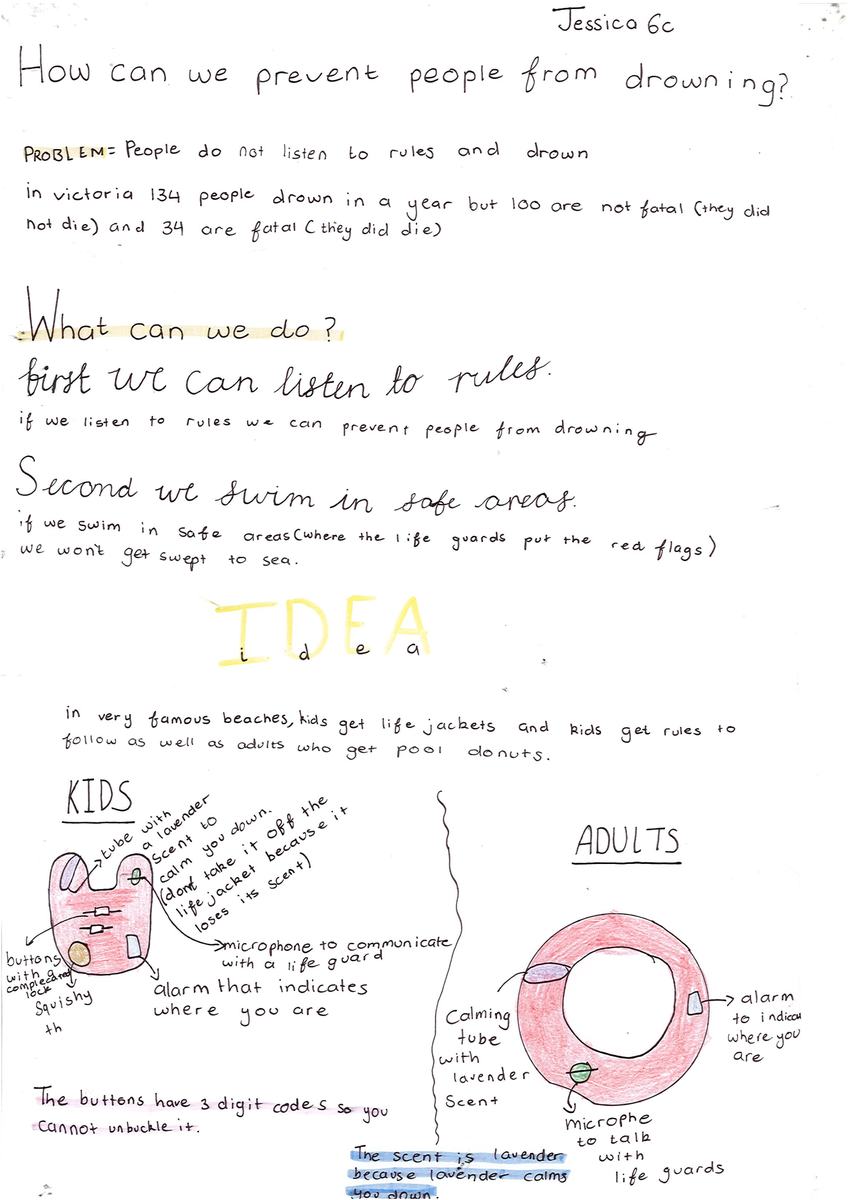 Jessica 6c
How can we prevent people from drowning?
PROBLEM= People do not listen to rules and drown
in victoria 134 people drown in a year but 100 are not fatal (they did
not die) and 34 are fatal (they did die)
What can we do?
first we can listen to rules.
if we listen to rules we can prevent people from drowning
Second we swim in safe areas.
if we swim in safe areas(where the life guards put the red flags)
we won't get swept to sea.
IDEA
idea
in very famous beaches, kids get life jackets and kids get rules to
follow as well as adults who get pool donuts.
KIDS
tube with
a lavender
scent to
calm you down.
(dont take it off the
life jacket because it
loses its scent)
microphone to communicate
with a life guard
buttons
with a
lock
Squishy
th
alarm that indicates
where you are
The buttons have 3 digit codes so you
cannot unbuckle it.
ADULTS
Calming
tube
with
lavender
Scent
alarm
to indica
where you
are
microphe
to talk
with
life guards
The scent is lavender
because lavender calms
you down.